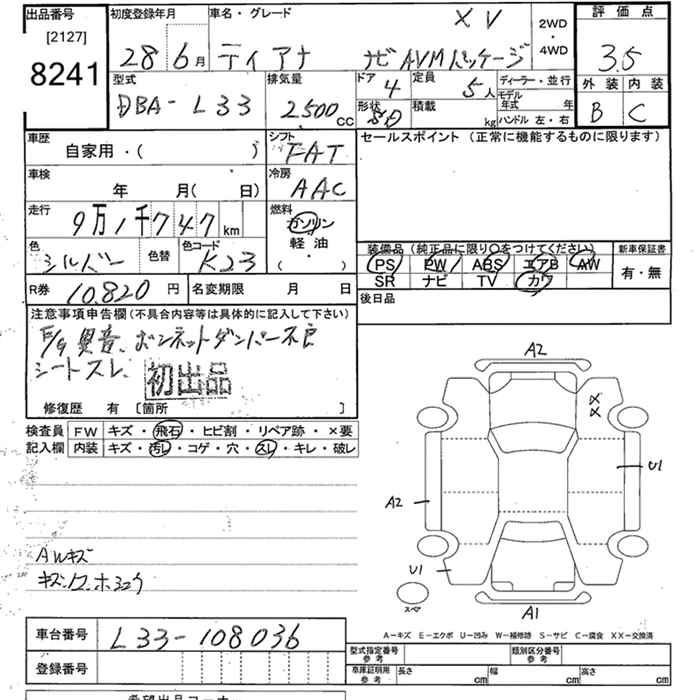 出品番号
[2127]
8241
初度登録年月
28年6月
車名・グレード
ティアナ XV ナビAVMパッケージ
2WD
・
4WD
評価点
3.5
外装 内装
B C
型式
DBA-L33
排気量
2500CC
ドア
4
形状
定員
5人
積載
kg
ディーラー・並行
モデル年式 年
ハンドル 左・右
車歴
自家用・( )
シフト
FAT
セールスポイント (正常に機能するものに限ります)
車検
年 月( 日)
冷房
AAC
走行
9万1千747km
燃料
ガソリン
軽油
・
( )
色
シルバー
色替
色コード
K23
装備品(純正品に限り○をつけてください)
PS PW ABS エアB AW
SR ナビ TV カワ
新車保証書
有・無
R券 10.820円
名変期限 月 日
後日品
注意事項申告欄(不具合内容等は具体的に記入して下さい)
E/g異音、ボンネットダンパー不良
シートスレ、
初出品
修復歴 有 [箇所 ]
検査員 FW キズ・飛石・ヒビ割・リペア跡・×要
記入欄 内装 キズ・汚レ・コゲ・穴・スレ・キレ・破レ
A2
XX
U1
A2
U1
スペア
A1
AWキズ
A-キズ E-エクボ U-凹み W-補修跡 S-サビ C-腐食 XX-交換済
車台番号 L33-108036
登録番号
型式指定番号
参考
類別区分番号
参考
車庫証明用
参考
長さ cm 幅 cm 高さ cm
希望出品コーナー